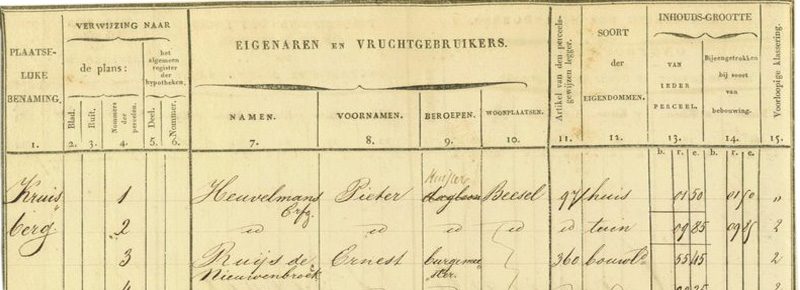 PLAATSELIJKE BENAMING.
VERWIJZING NAAR
de plans:
het algemeen register der hypotheken.
Blad.
Ruit.
Nommers der perceelen.
Deel.
Nommer.
EIGENAREN EN VRUCHTGEBRUIKERS.
NAMEN.
VOORNAMEN.
BEROEPEN.
WOONPLAATSEN.
Artikel van den perceelsgewijzen legger.
SOORT der EIGENDOMMEN.
INHOUDS-GROOTTE
VAN IEDER PERCEEL.
Bijeengetrokken bij soort van bebouwing.
Voorloopige klassering.
1. 2. 3. 4. 5. 6. 7. 8. 9. 10. 11. 12. 13. 14. 15.
b. r. e. b. r. e.
Kruis 1 Heuvelmans Pieter Beesel 97 huis 01 50 01 50 "
Erfg.
berg 2 id id id id id tuin 09 85 09 85 2
3 Ruijs de Ernest burgemee 360 bouwld 55 45 2
Nieuwenbroek ster.
4